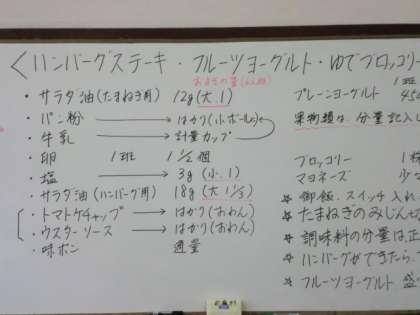 ＜ハンバーグステーキ・フルーツヨーグルト・ゆでブロッコリー
・サラダ油(たまねぎ用) 12g(大.1)
・パン粉 → はかり(小ボール)
・牛乳 → 計量カップ
・卵 1班 1½個
・塩 → 3g(小.1)
・サラダ油(ハンバーグ用) 18g(大1½)
・トマトケチャップ → はかり(おわん)
・ウスターソース → はかり(おわん)
・味ポン 適量
1班
プレーンヨーグルト 450
果物類は、分量記入し
ブロッコリー 1株
マヨネーズ 少
☆御飯.スイッチ入れ
☆たまねぎのみじん切
☆調味料の分量は正
☆ハンバーグができたら、
☆フルーツヨーグルト 盛